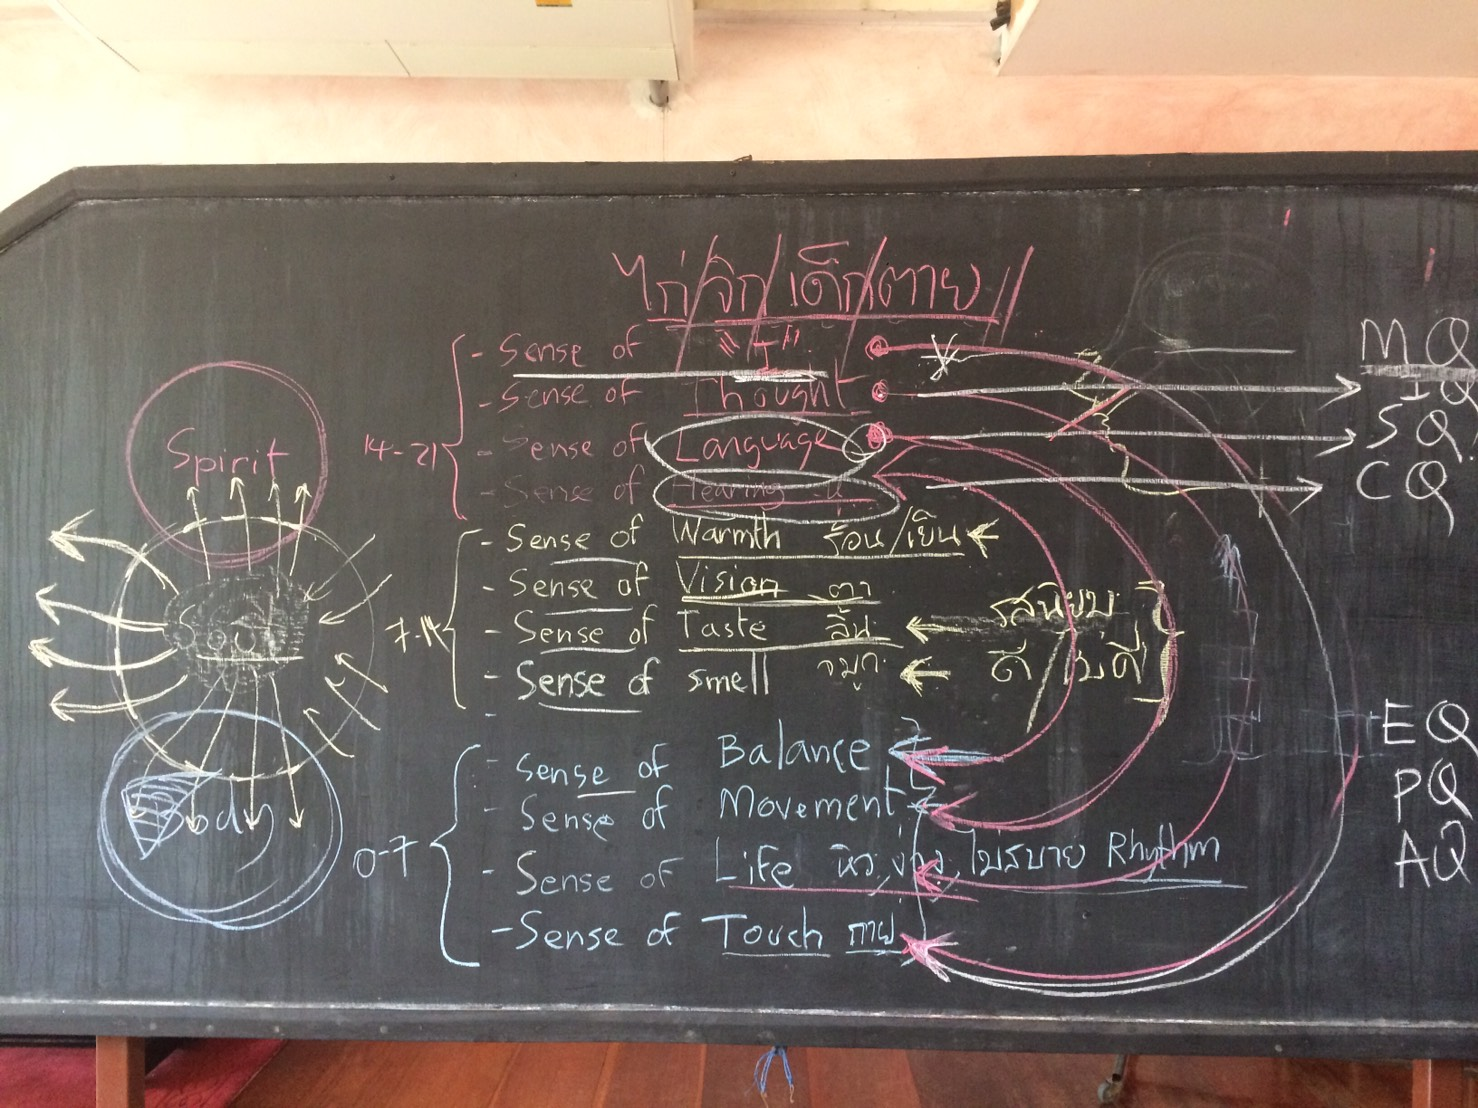 ไก่/จิก/เด็ก/ตาย//
- Sense of "I"
- Sense of Thought
- Sense of Language
- Sense of Hearing หู
14-21
Spirit
- Sense of Warmth ร้อน/เย็น
- Sense of Vision ตา
- Sense of Taste ลิ้น
- Sense of smell จมูก
7-14
รสนิยม
ดี/ไม่ดี
Soul
- Sense of Balance
- Sense of Movement
- Sense of Life หิว, ง่วง, ไม่สบาย Rhythm
- Sense of Touch กาย
0-7
Body
MQ
IQ
SQ
CQ
EQ
PQ
AQ